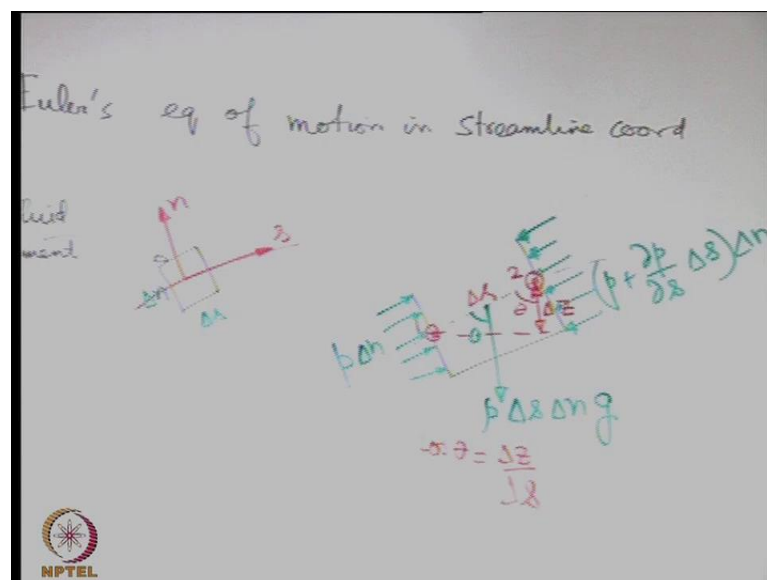 Euler's eq of motion in streamline coord
luid
ment
n
s
Δn
Δs
2
Δs
Δz
θ
(p + ∂p/∂s Δs) Δn
pΔn
θ
ρ Δs Δn g
θ = Δz/Δs
NPTEL